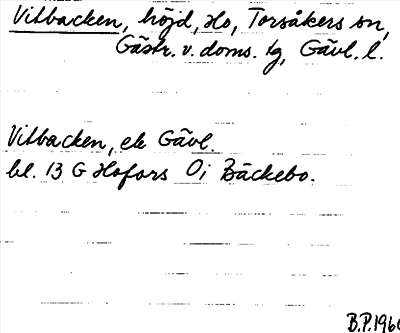 Vitbacken, höjd, Ho, Torsåkers sn,
Gästr. v. doms. tg, Gävl. l.
Vitbacken, ek Gävl.
bl. 13 G Hofors Oi Bäckebo.
B.P. 1960